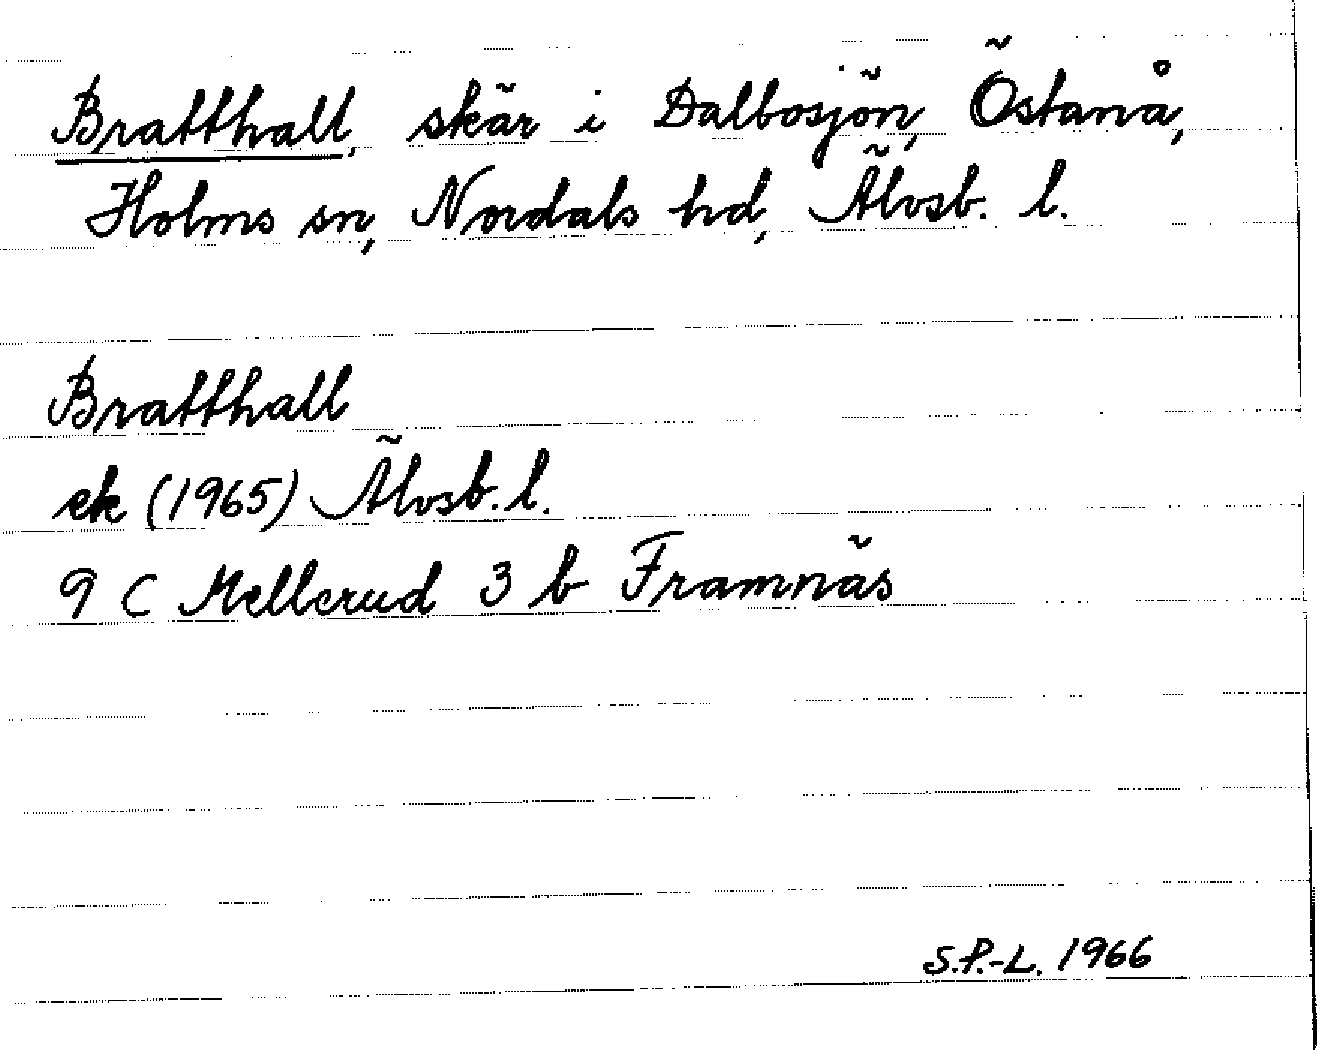 Bratthall, skär i Dalbosjön, Östanå,
Holms sn, Nordals hd, Älvsb. l.
Bratthall
ek (1965) Älvsb. l.
9 C Mellerud 3 b Framnäs
S.P.-L. 1966